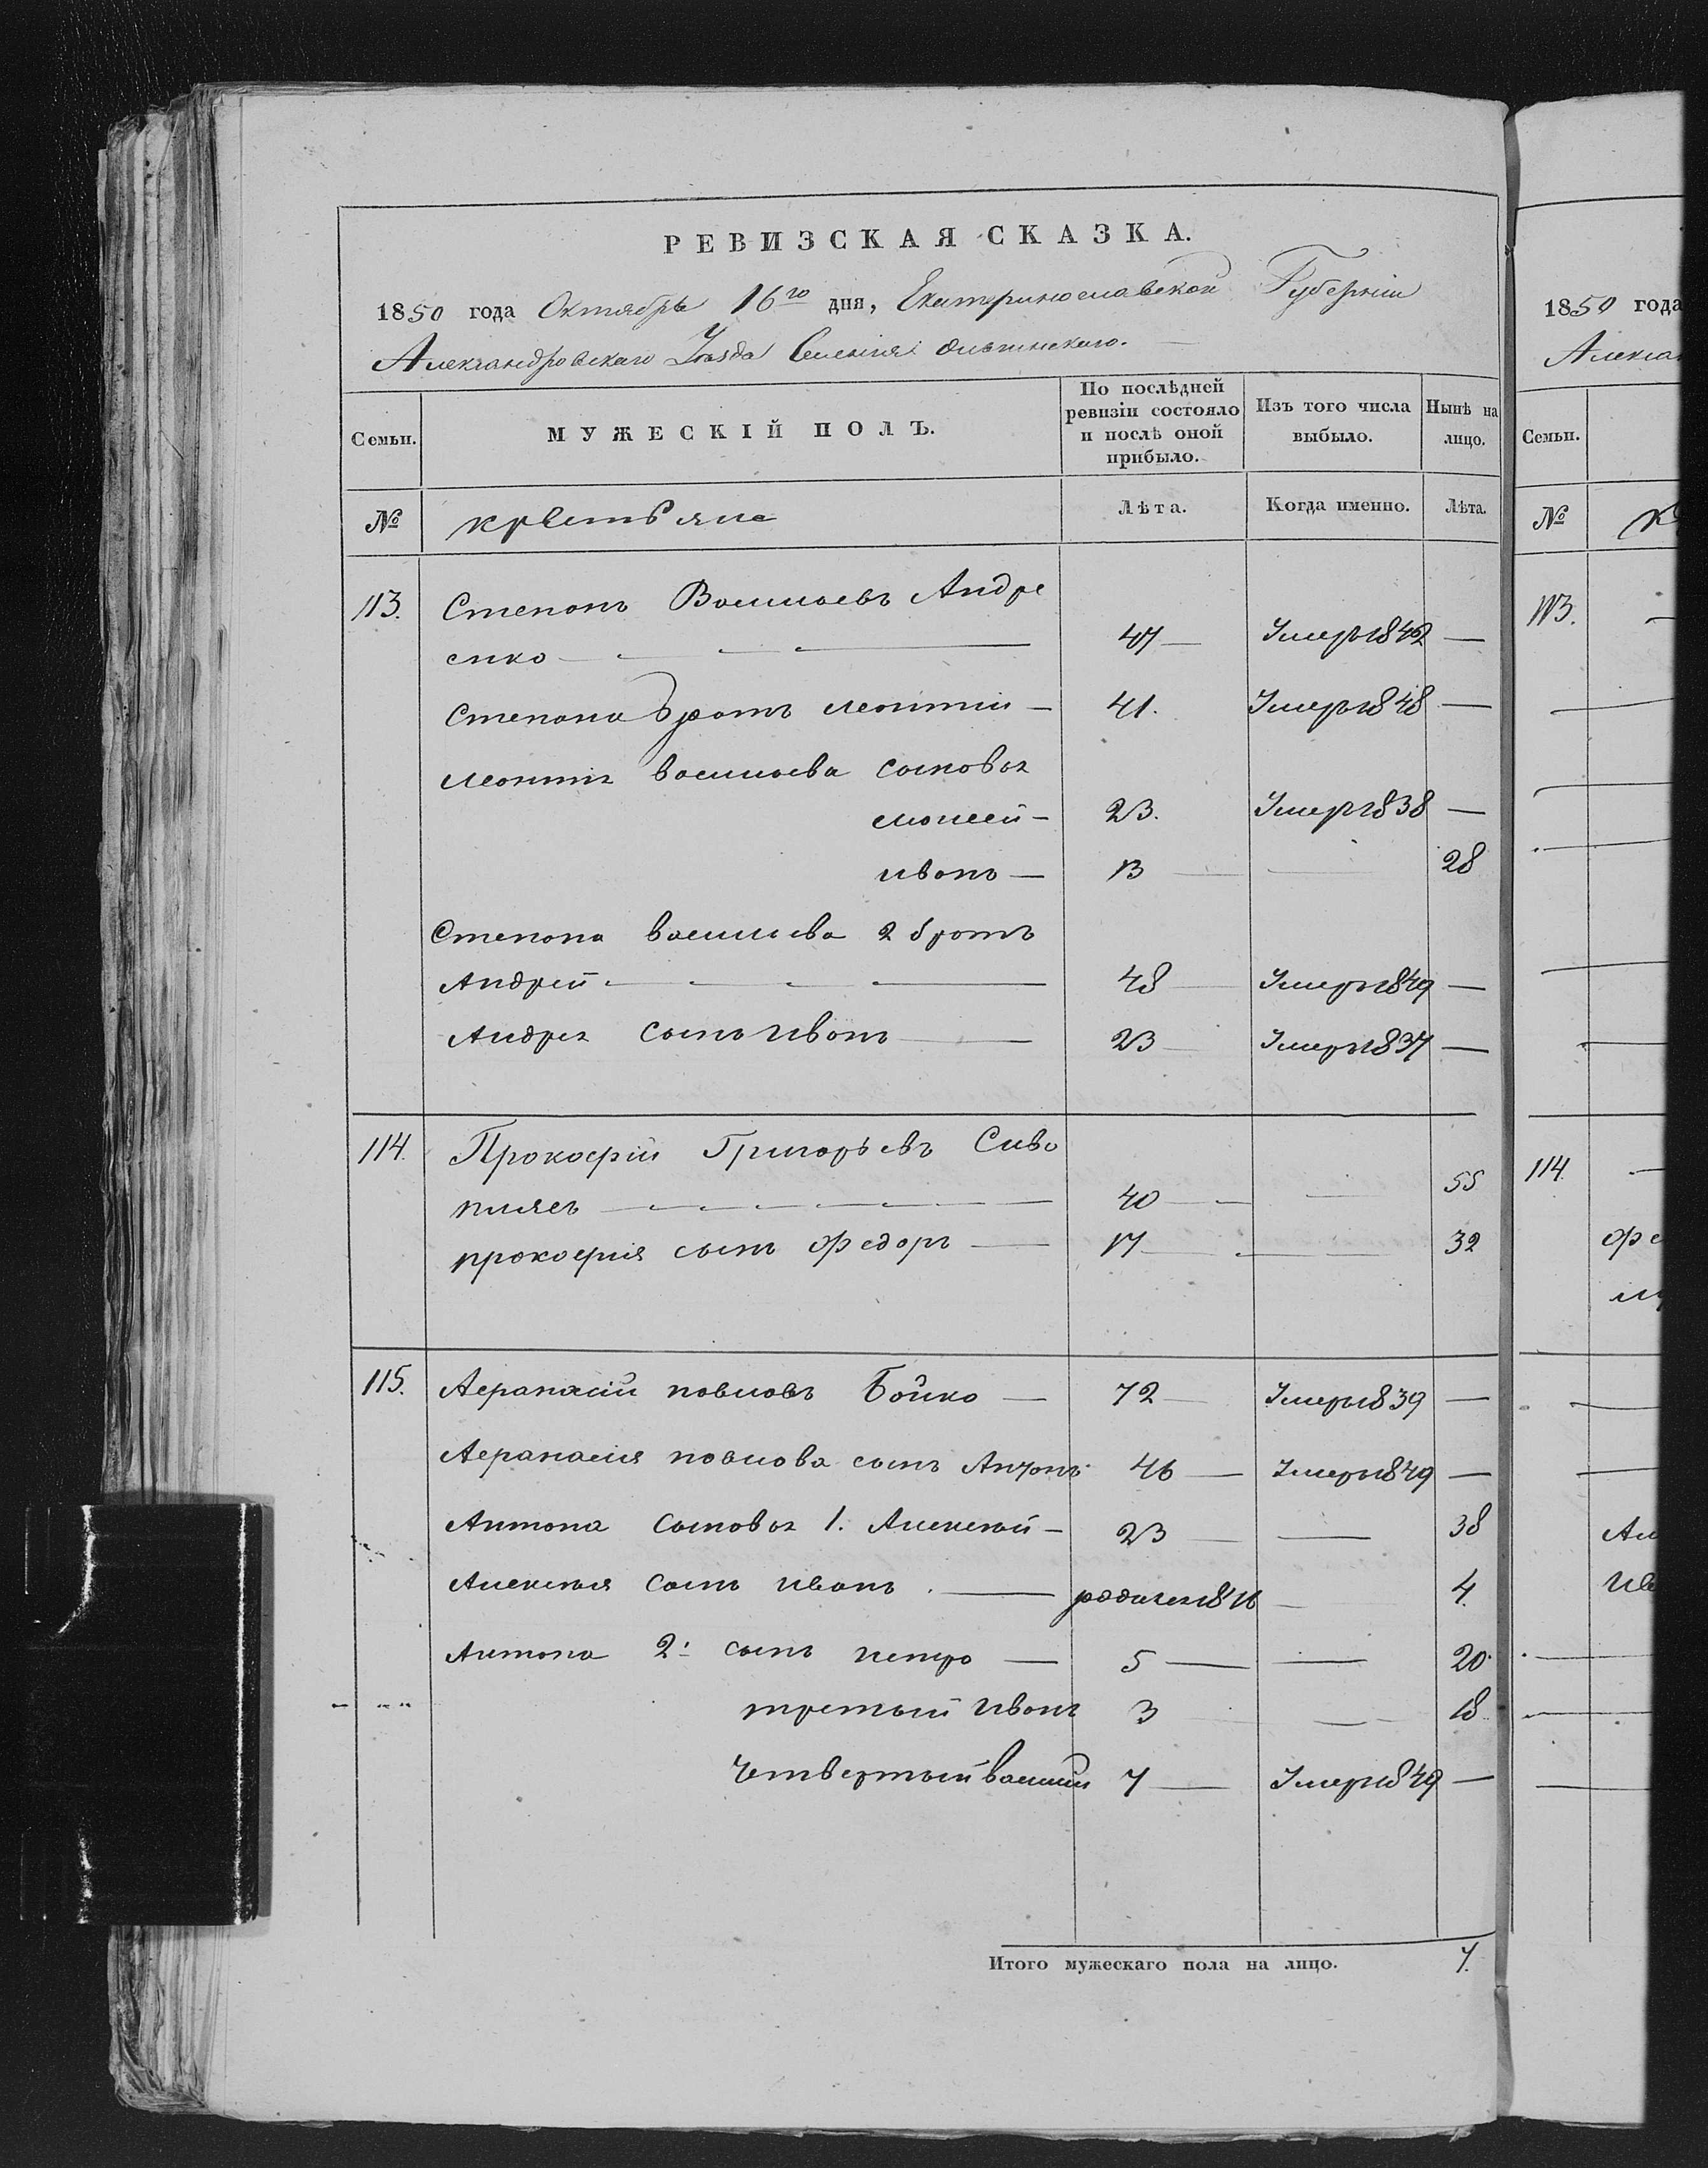 РЕВИЗСКАЯ СКАЗКА.
1850 года Октября 16го дня, Екатеринославской Губерніи
Александровскаго Уѣзда Селенія
Семьи.
МУЖЕСКІЙ ПОЛЪ.
По послѣдней ревизіи состояло и послѣ оной прибыло.
Изъ того числа выбыло.
Нынѣ на лицо.
№ крестьяне Лѣта. Когда именно. Лѣта.
113. Степанъ Васильевъ Андре
енко — 47 — Умеръ 1842 —
Степана братъ Леонтій — 41. Умеръ 1848 —
Леонтія васильева сыновья
моисей — 23. Умеръ 1838 —
иванъ — 13 — — 28
Степана васильева 2 братъ
Андрей — 48 — Умеръ 1849 —
Андрея сынъ иванъ — 23 — Умеръ 1837 —
114. Прокофій Григорьевъ Сиво
плясъ — 40 — — 55
прокофія сынъ Федоръ — 17 — — 32
115. Афанасій павловъ Бойко — 72 — Умеръ 1839 —
Афанасія павлова сынъ Антонъ 46 — Умеръ 1849 —
Антона сыновья 1. Алексѣй — 23 — — 38
Алексѣя сынъ иванъ. — родился 1846 — 4.
Антона 2й сынъ петро — 5 — — 20.
третьій иванъ 3 — — 18
Четвертый василий 7 — Умеръ 1849 —
Итого мужескаго пола на лицо. 7.
1850 года
Алексан
Семьи.
№
113.
114.
Фе
Ал
ив